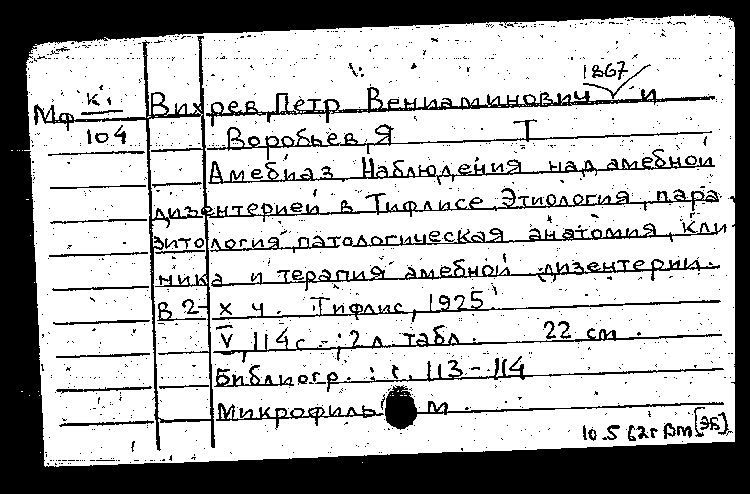 1867
Мф К1/104 Вихрев, Петр Вениаминович и
Воробьев, Я Т
Амебиаз. Наблюдения над амебной
дизентерией в Тифлисе. Этиология, пара
зитология, патологическая анатомия, кли
ника и терапия амебной дизентерии.
В 2-х ч. Тифлис, 1925
V, 114 с.; 2 л. табл. 22 cm.
Библиогр.: с. 113-114
Микрофильм.
10.5 62г Вт [ЭБ]